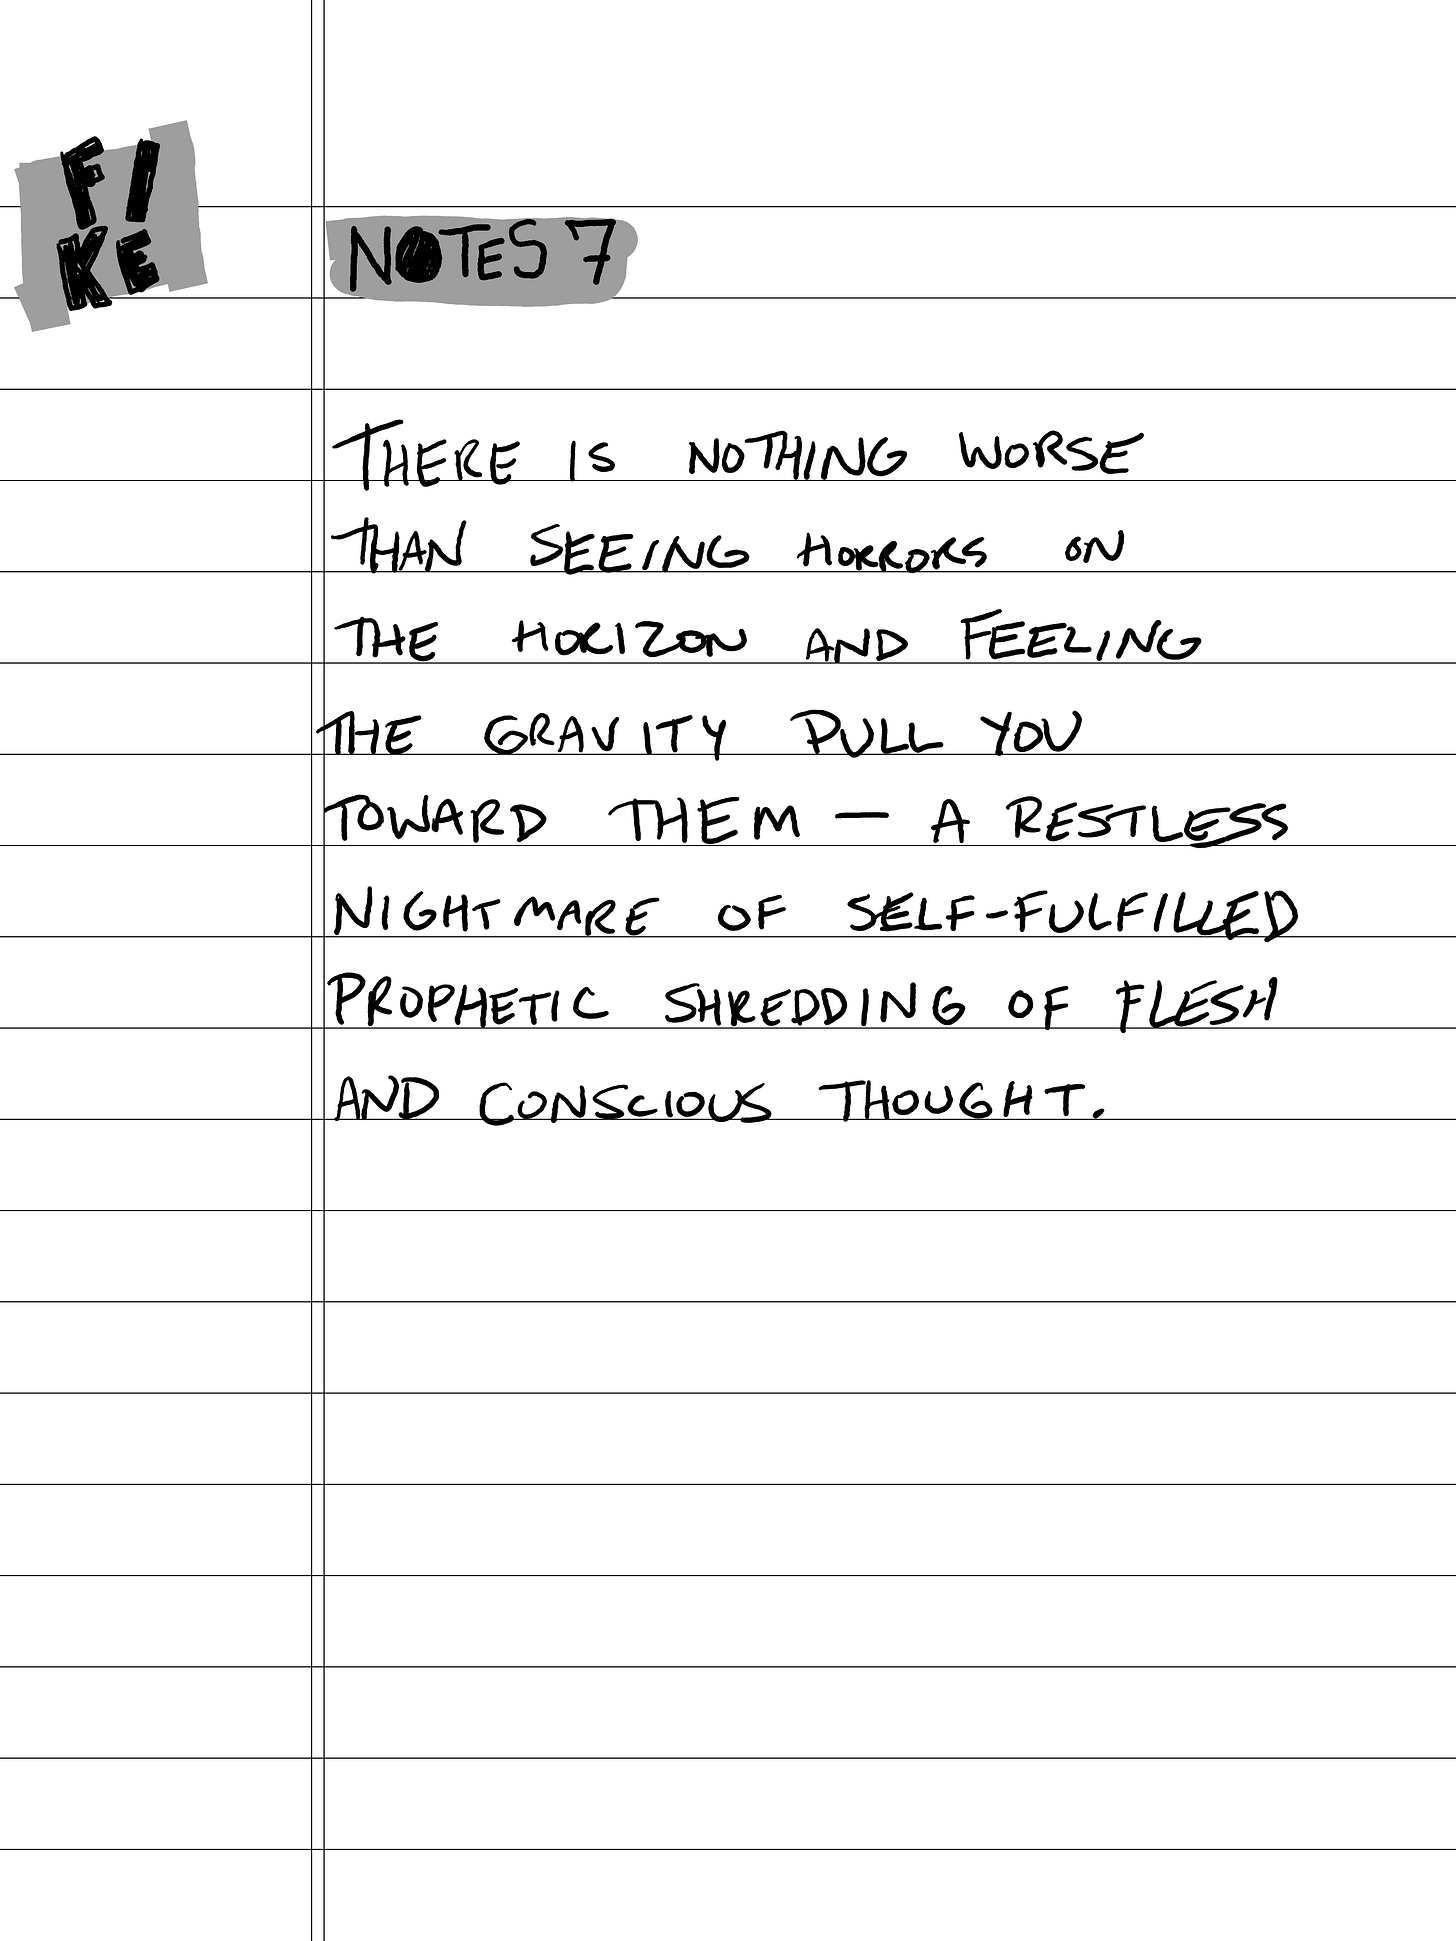 FI
KE
NOTES 7
THERE IS NOTHING WORSE
THAN SEEING HORRORS ON
THE HORIZON AND FEELING
THE GRAVITY PULL YOU
TOWARD THEM — A RESTLESS
NIGHTMARE OF SELF-FULFILLED
PROPHETIC SHREDDING OF FLESH
AND CONSCIOUS THOUGHT.